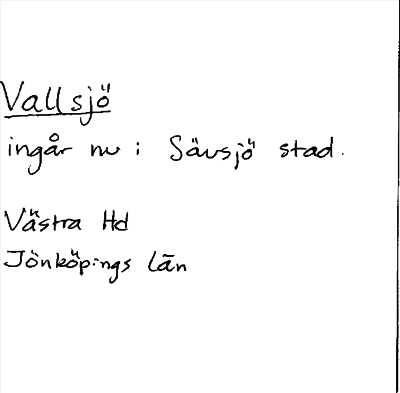 Vallsjö
ingår nu i Sävsjö stad.
Västra Hd
Jönköpings län